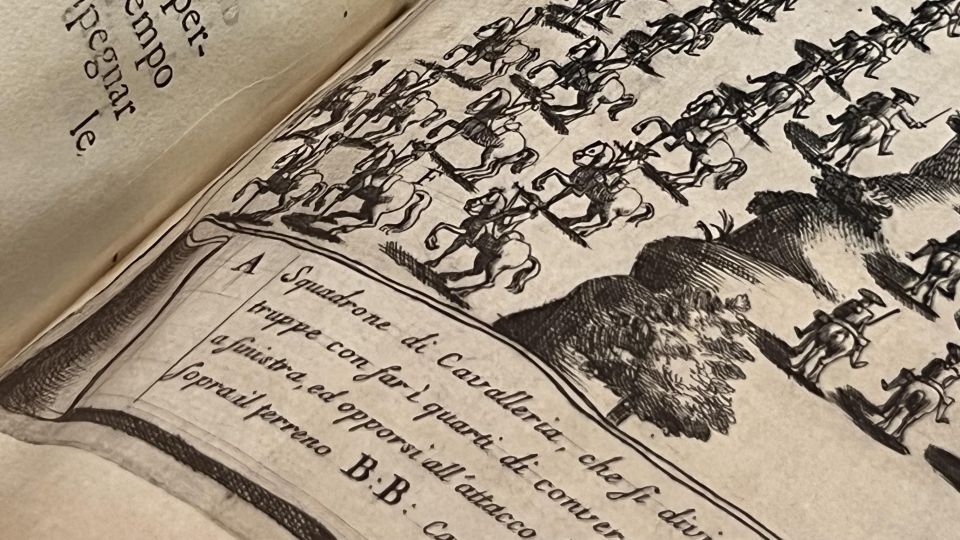 per-
empo
pegnar
le
A Squadrone di Cavalleria, che si divi
truppe con far i quarti di conver
a sinistra, ed opporsi all'attacco
sopra il terreno B:B: Ca